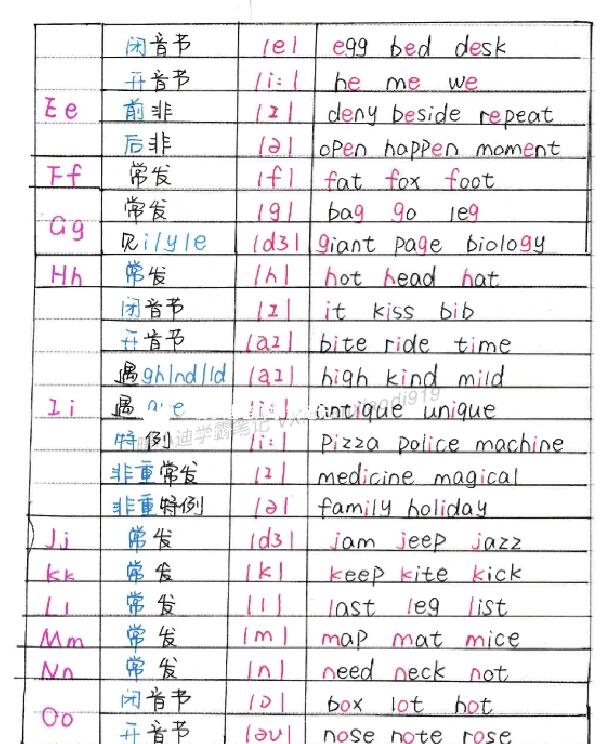 闭音节 |e| egg bed desk
开音节 |i:| he me we
Ee 前非 |ɪ| deny beside repeat
后非 |ə| open happen moment
Ff 常发 |f| fat fox foot
Gg 常发 |g| bag go leg
见i|y|e |dʒ| giant page biology
Hh 常发 |h| hot head hat
闭音节 |ɪ| it kiss bib
开音节 |aɪ| bite ride time
遇gh|nd|ld |aɪ| high kind mild
Ii 遇 |i:| intique unique
特例 |i:| pizza police machine
非重常发 |ɪ| medicine magical
非重特例 |ə| family holiday
Jj 常发 |dʒ| jam jeep jazz
Kk 常发 |k| keep kite kick
Ll 常发 |l| last leg list
Mm 常发 |m| map mat mice
Nn 常发 |n| need neck not
Oo 闭音节 |ɒ| box lot hot
开音节 |əʊ| nose note rose